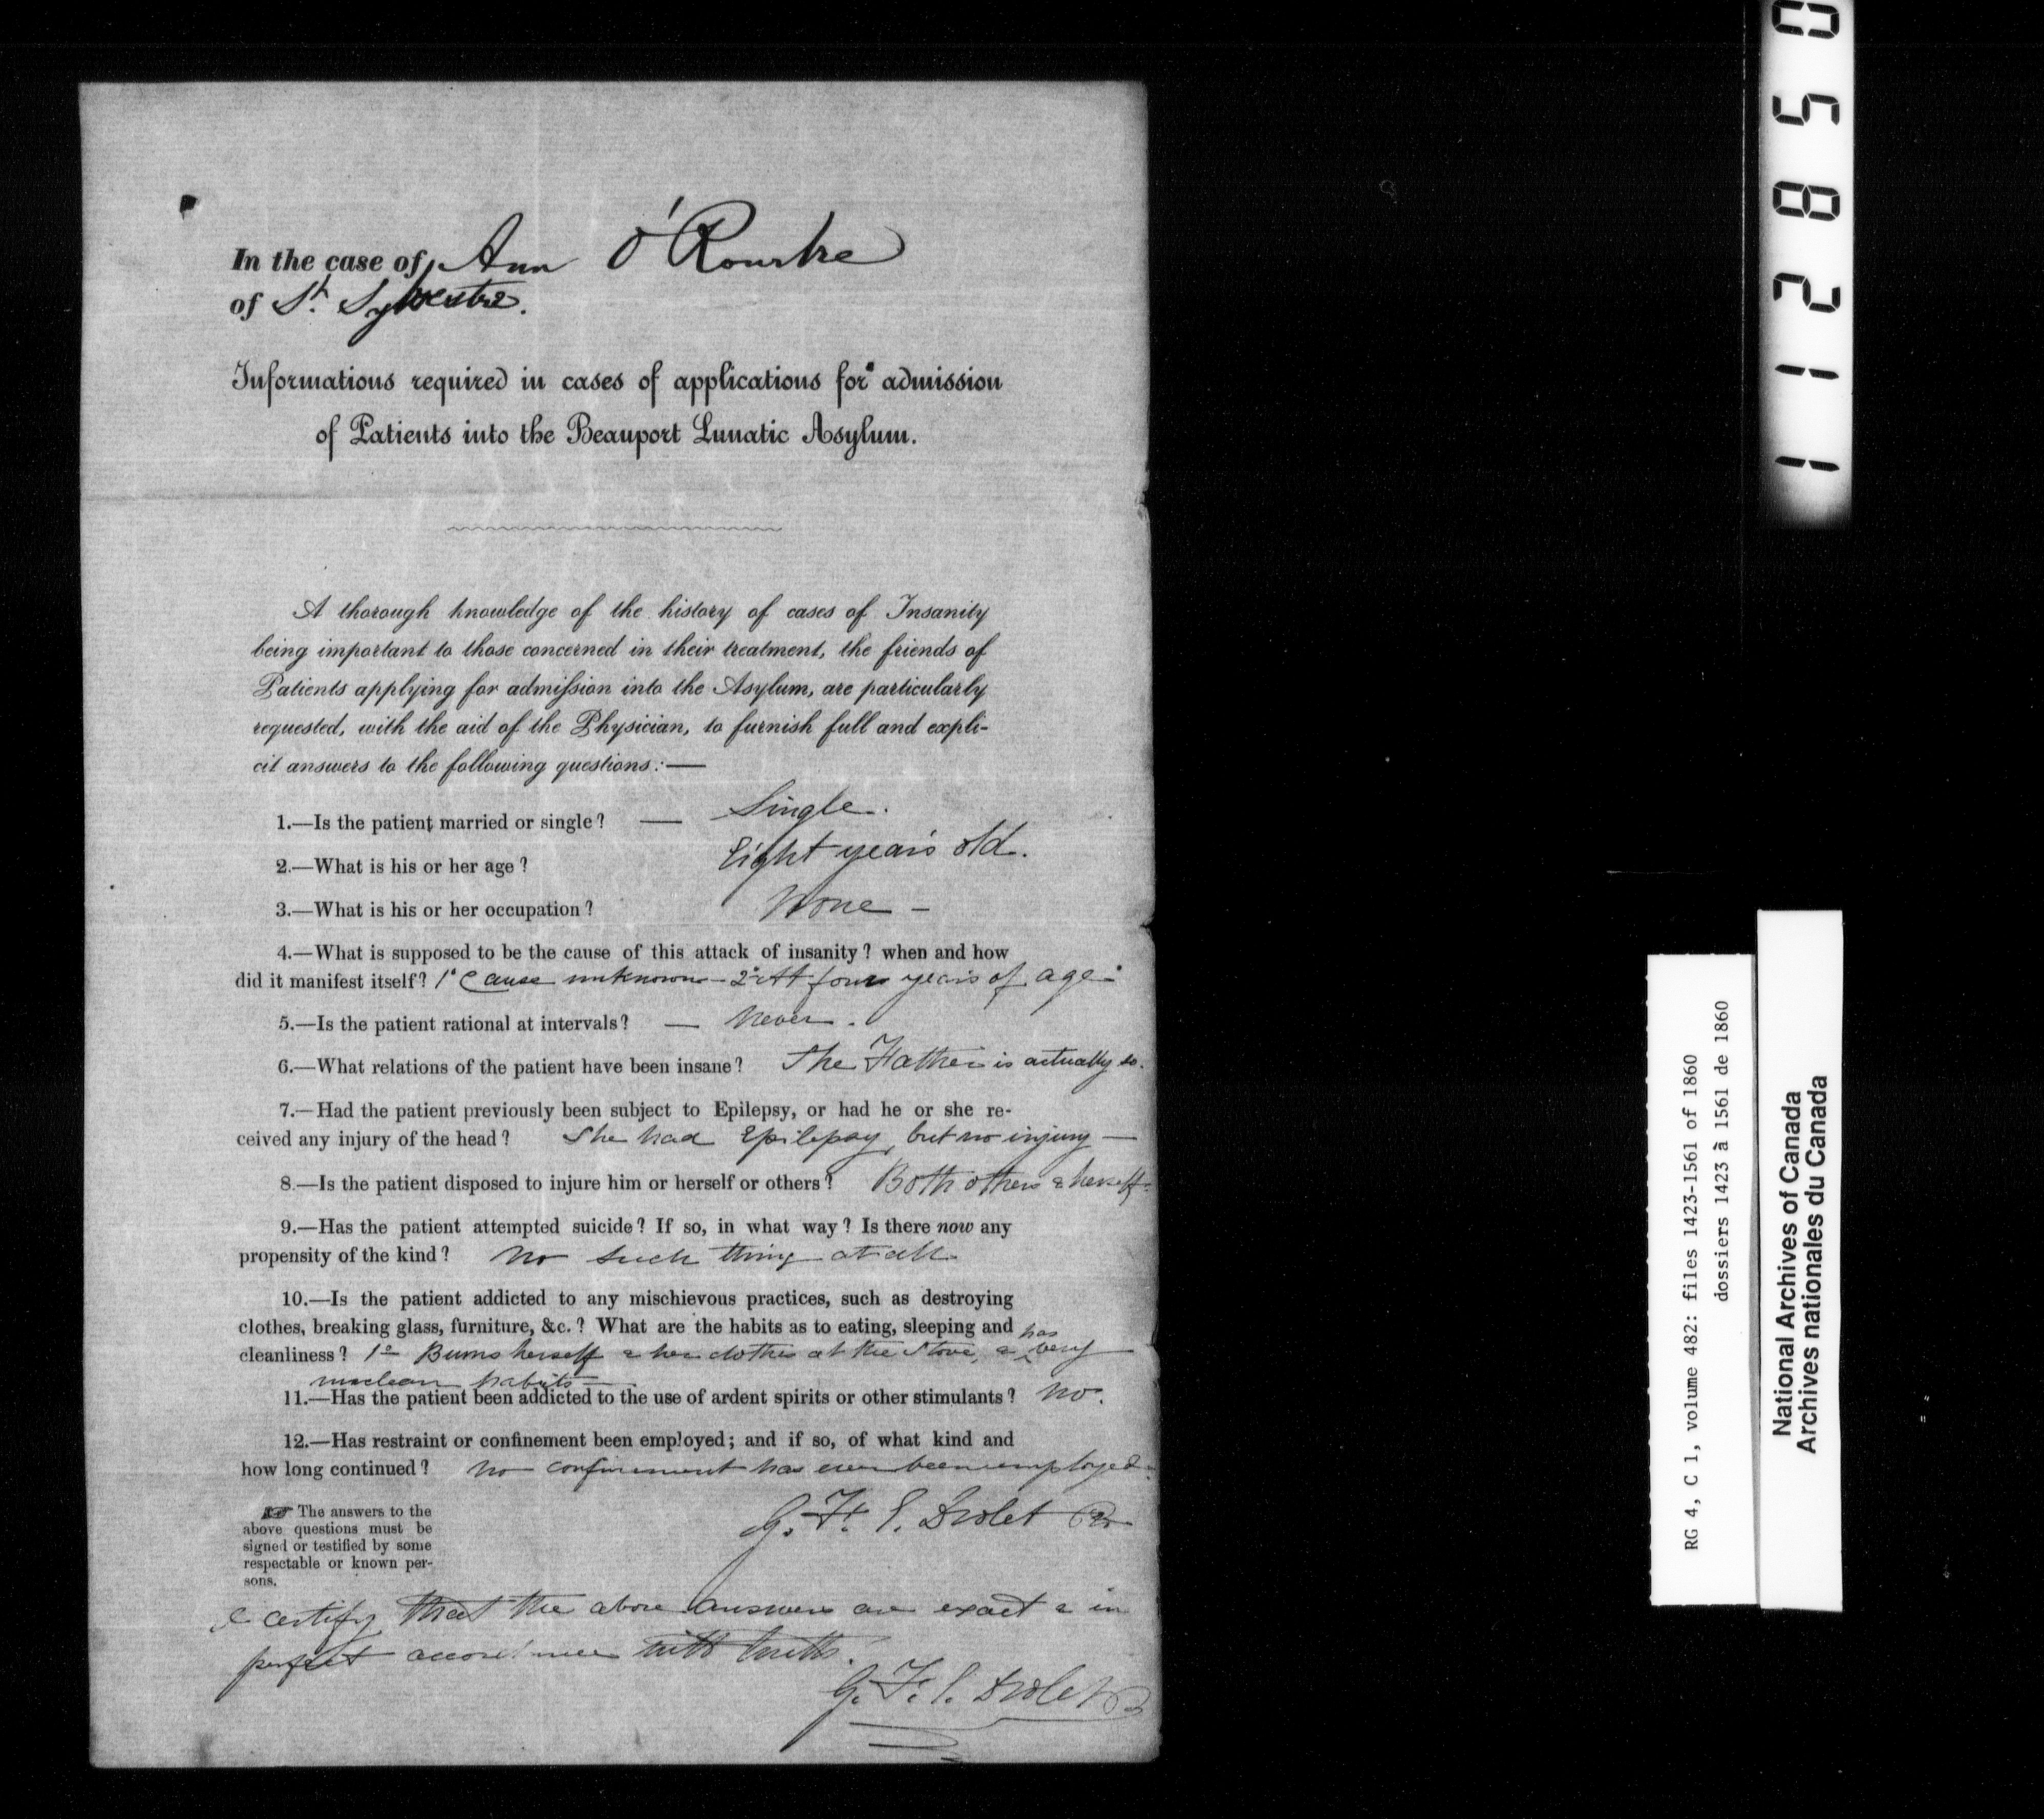 In the case of Ann O'Rourke
of St. Sylvestre.
Informations required in cases of applications for admission
of Patients into the Beauport Lunatic Asylum.
A thorough knowledge of the history of cases of Insanity
being important to those concerned in their treatment, the friends of
Patients applying for admission into the Asylum, are particularly
requested, with the aid of the Physician, to furnish full and expli-
cit answers to the following questions:—
1.—Is the patient married or single? — Single.
2.—What is his or her age? Eight years old.
3.—What is his or her occupation? None —
4.—What is supposed to be the cause of this attack of insanity? when and how
did it manifest itself? 1° Cause unknown — 2° At four years of age.
5.—Is the patient rational at intervals? — Never.
6.—What relations of the patient have been insane? The Father is actually so.
7.—Had the patient previously been subject to Epilepsy, or had he or she re-
ceived any injury of the head? She had Epilepsy, but no injury —
8.—Is the patient disposed to injure him or herself or others? Both others & herself.
9.—Has the patient attempted suicide? If so, in what way? Is there now any
propensity of the kind? No such thing at all
10.—Is the patient addicted to any mischievous practices, such as destroying
clothes, breaking glass, furniture, &c.? What are the habits as to eating, sleeping and
cleanliness? 1° Burns herself & her clothes at the Stove, & has very
unclean habits —
11.—Has the patient been addicted to the use of ardent spirits or other stimulants? No.
12.—Has restraint or confinement been employed; and if so, of what kind and
how long continued? No confinement has ever been employed.
☞ The answers to the
above questions must be
signed or testified by some
respectable or known per-
sons.
G. F. E. Drolet Ptr
I certify that the above answers are exact & in
perfect accordance with truth.
G. F. E. Drolet
112850
RG 4, C 1, volume 482: files 1423-1561 of 1860
dossiers 1423 à 1561 de 1860
National Archives of Canada
Archives nationales du Canada